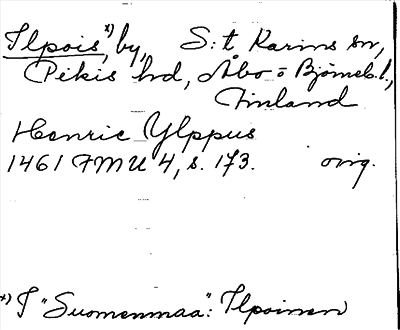 Ilpois,*) by, S:t Karins sn,
Pikis hd, Åbo o Björneb. l.,
Finland
Henric Ylppus
1461 FMU 4, s. 173. orig.
*) I "Suomenmaa": Ilpoinen